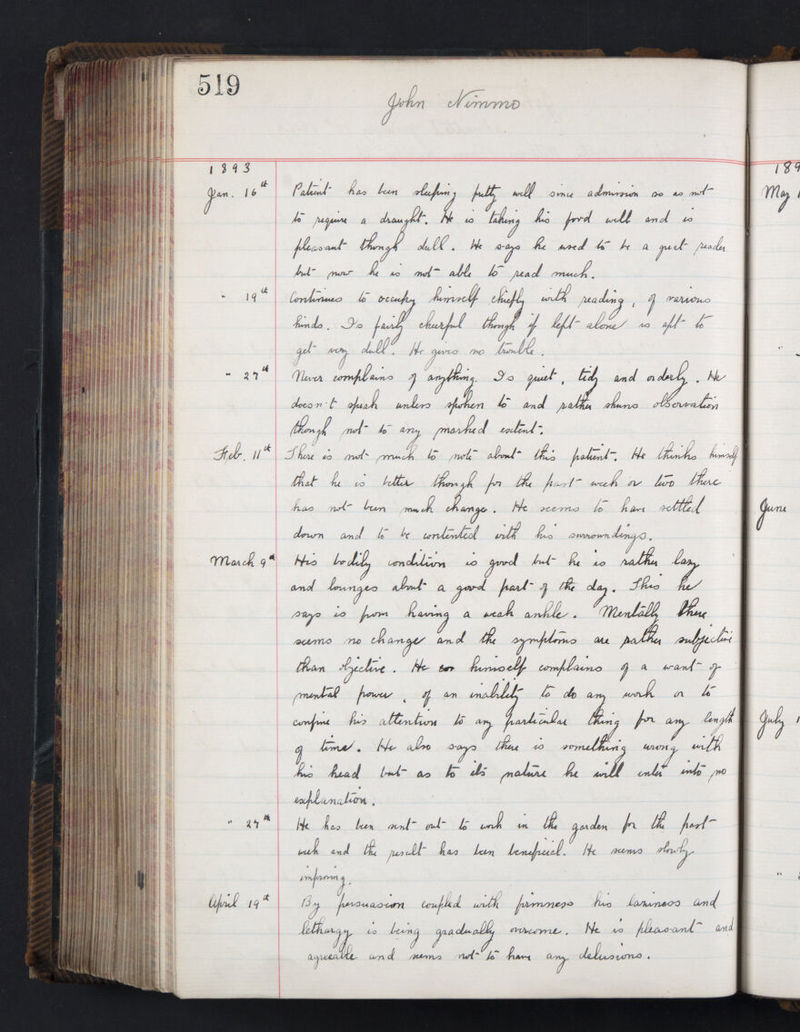 519
John Nimmo
1893
Jan. 16th Patient has been sleeping pretty well since admission so as not
to require a draught. He is taking his food well and is
pleasant though dull. He says he used to be a great reader
but now he is not able to read much.
" 19th Continues to occupy himself chiefly with reading, of various
kinds. Is fairly cheerful though if left alone is apt to
get very dull. He gives no trouble.
" 27th Never complains of anything. Is quiet, tidy and orderly. He
doesn't speak unless spoken to and rather shuns observation
though not to any marked extent.
Feb. 11th There is not much to note about this patient. He thinks himself
that he is better though for the past week or two there
has not been much change. He seems to have settled
down and to be contented with his surroundings.
March 9th His bodily condition is good but he is rather lazy
and lounges about a good part of the day. This he
says is from having a weak ankle. Mentally there
seems no change and the symptoms are rather subjective
than objective. He himself complains of a want of
mental power, of an inability to do any work or to
confine his attention to any particular thing for any length
of time. He also says there is something wrong with
his head but as to its nature he will enter into no
explanation.
" 27th He has been sent out to work in the garden for the past
week and the result has been beneficial. He seems slowly
improving.
April 19th By persuasion coupled with firmness his laziness and
lethargy is being gradually overcome. He is pleasant and
agreeable and seems not to have any delusions.
189
May
June
July